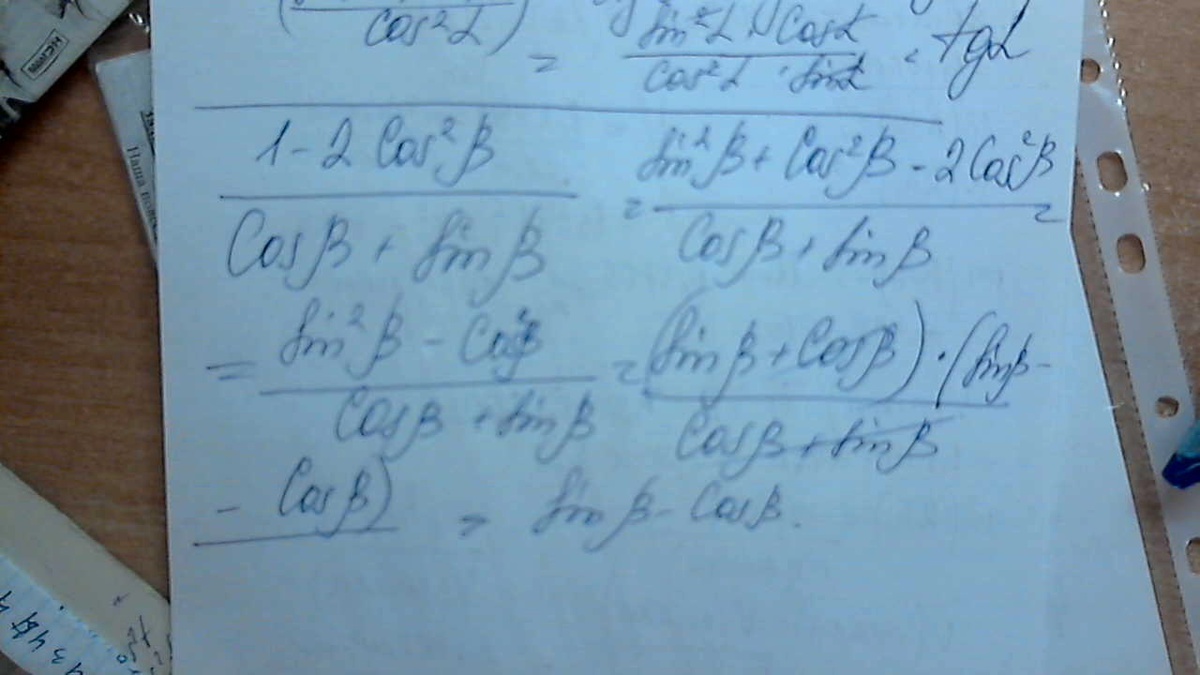 cos²α)
= sin²α · cosα / cos²α · sinα = tgα
1 - 2 cos²β / cosβ + sinβ = sin²β + cos²β - 2cos²β / cosβ + sinβ =
= sin²β - cos²β / cosβ + sinβ = (sinβ + cosβ) · (sinβ - / cosβ + sinβ
- cosβ) = sinβ - cosβ.
Наша